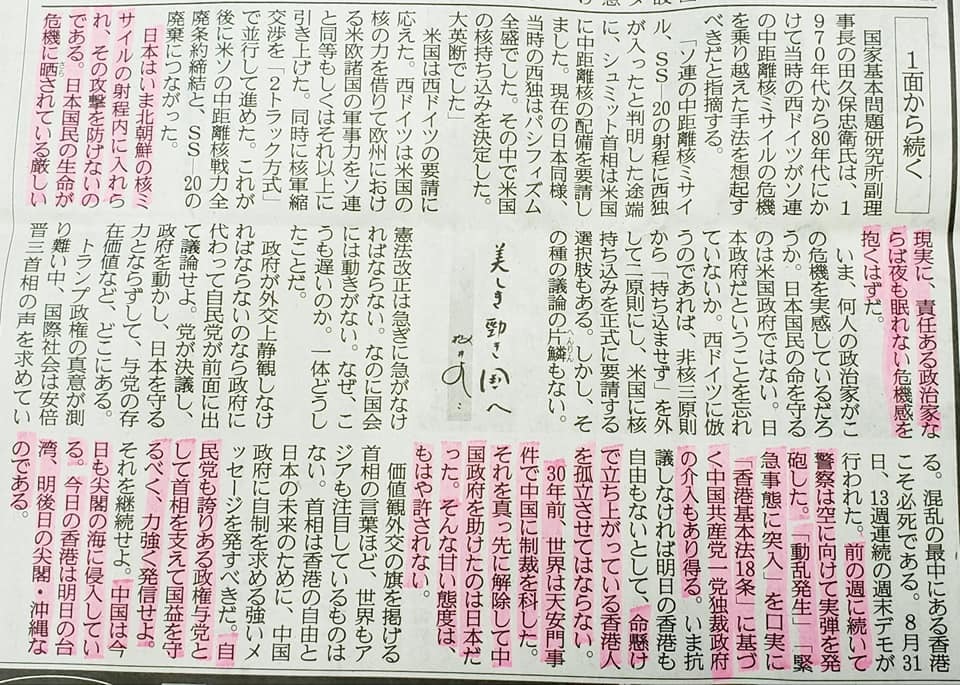 1面から続く
国家基本問題研究所副理
事長の田久保忠衛氏は、1
970年代から80年代にか
けて当時の西ドイツがソ連
の中距離核ミサイルの危機
を乗り越えた手法を想起す
べきだと指摘する。
「ソ連の中距離核ミサイ
ル、SS―20の射程に西独
が入ったと判明した途端
に、シュミット首相は米国
に中距離核の配備を要請し
ました。現在の日本同様、
当時の西独はパシフィズム
全盛でした。その中で米国
の核持ち込みを決定した。
大英断でした」
米国は西ドイツの要請に
応えた。西ドイツは米国の
核の力を借りて欧州におけ
る米欧諸国の軍事力をソ連
と同等もしくはそれ以上に
引き上げた。同時に核軍縮
交渉を「2トラック方式」
で並行して進めた。これが
後に米ソの中距離核戦力全
廃条約締結と、SS―20の
廃棄につながった。
日本はいま北朝鮮の核ミ
サイルの射程内に入れら
れ、その攻撃を防げないの
である。日本国民の生命が
危機に晒されている厳しい
さら
現実に、責任ある政治家な
らば夜も眠れない危機感を
抱くはずだ。
いま、何人の政治家がこ
の危機を実感しているだろ
うか。日本国民の命を守る
のは米国政府ではない。日
本政府だということを忘れ
ていないか。西ドイツに倣
うのであれば、非核三原則
から「持ち込ませず」を外
して二原則にし、米国に核
持ち込みを正式に要請する
選択肢もある。しかし、そ
の種の議論の片鱗もない。
へんりん
美しき勁き国へ
憲法改正は急ぎに急がなけ
ればならない。なのに国会
には動きがない。なぜ、こ
うも遅いのか。一体どうし
たことだ。
政府が外交上静観しなけ
ればならないのなら政府に
代わって自民党が前面に出
て議論せよ。党が決議し、
政府を動かし、日本を守る
力とならずして、与党の存
在価値など、どこにある。
トランプ政権の真意が測
り難い中、国際社会は安倍
晋三首相の声を求めてい
る。混乱の最中にある香港
こそ必死である。8月31
日、13週連続の週末デモが
行われた。前の週に続いて
警察は空に向けて実弾を発
砲した。「動乱発生」「緊
急事態に突入」を口実に
「香港基本法18条」に基づ
く中国共産党一党独裁政府
の介入もあり得る。いま抗
議しなければ明日の香港も
自由もないとして、命懸け
で立ち上がっている香港人
を孤立させてはならない。
30年前、世界は天安門事
件で中国に制裁を科した。
それを真っ先に解除して中
国政府を助けたのは日本だ
った。そんな甘い態度は、
もはや許されない。
価値観外交の旗を掲げる
首相の言葉ほど、世界もア
ジアも注目しているものは
ない。首相は香港の自由と
日本の未来のために、中国
政府に自制を求める強いメ
ッセージを発すべきだ。自
民党も誇りある政権与党と
して首相を支えて国益を守
るべく、力強く発信せよ。
それを継続せよ。中国は今
日も尖閣の海に侵入してい
る。今日の香港は明日の台
湾、明後日の尖閣・沖縄な
のである。